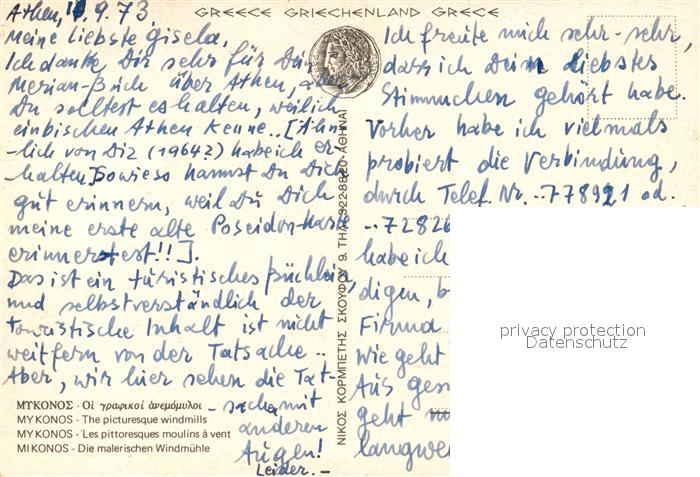 Athen, 10.9.73
GREECE GRIECHENLAND GRECE
Meine liebste Gisela,
Ich danke Dir sehr für Dein
Merian-Buch über Athen, aber
Du solltest es halten, weil ich
ein bischen Athen kenne.. [Ähn-
-lich von Dir (1964?) habe ich er-
halten, Sowieso kannst Du Dich
gut erinnern, weil Du Dich
meine erste alte Poseidon-Karte
erinnerstest!!].
Das ist ein turistisches Büchlein,
und selbstverständlich der
touristische Inhalt ist nicht
weit fern von der Tatsache..
Aber, wir hier sehen die Tat-
-sache mit
anderen
Augen!
Leider.-
ΜΥΚΟΝΟΣ - Οἱ γραφικοί ἀνεμόμυλοι
MYKONOS - The picturesque windmills
MYKONOS - Les pittoresques moulins à vent
MIKONOS - Die malerischen Windmühle
ΝΙΚΟΣ ΚΟΡΜΠΕΤΗΣ ΣΚΟΥΦΟΥ 9. ΤΗΛ. 322-8820-ΑΘΗΝΑΙ
Ich freute mich sehr-sehr,
dass ich Dein liebstes
Stimmchen gehört habe.
Vorher habe ich vielmals
probiert die Verbindung,
durch Telef. Nr. ..778921 od.
..72826
habe ich
digen, b
Firmd
wie geht
Aus ges
geht
langwe
privacy protection
Datenschutz